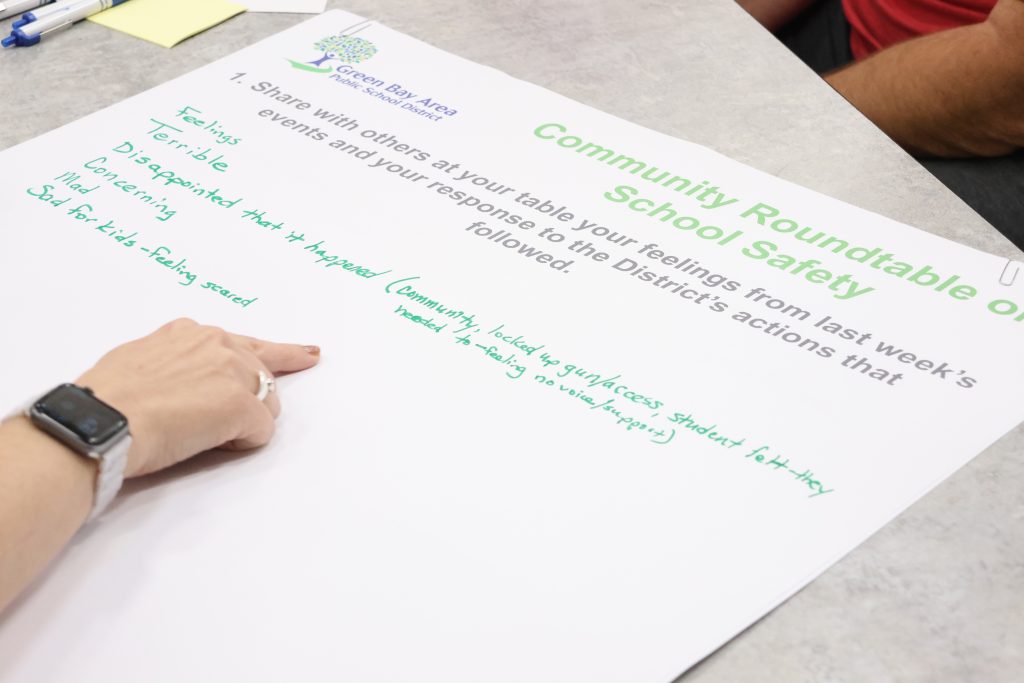 Green Bay Area
Public School District
Community Roundtable on
School Safety
1. Share with others at your table your feelings from last week's
events and your response to the District's actions that
followed.
Feelings
Terrible
Disappointed that it happened (Community, locked up gun/access, student felt-they
needed to-feeling no voice/support)
Concerning
Mad
Sad for kids-feeling scared